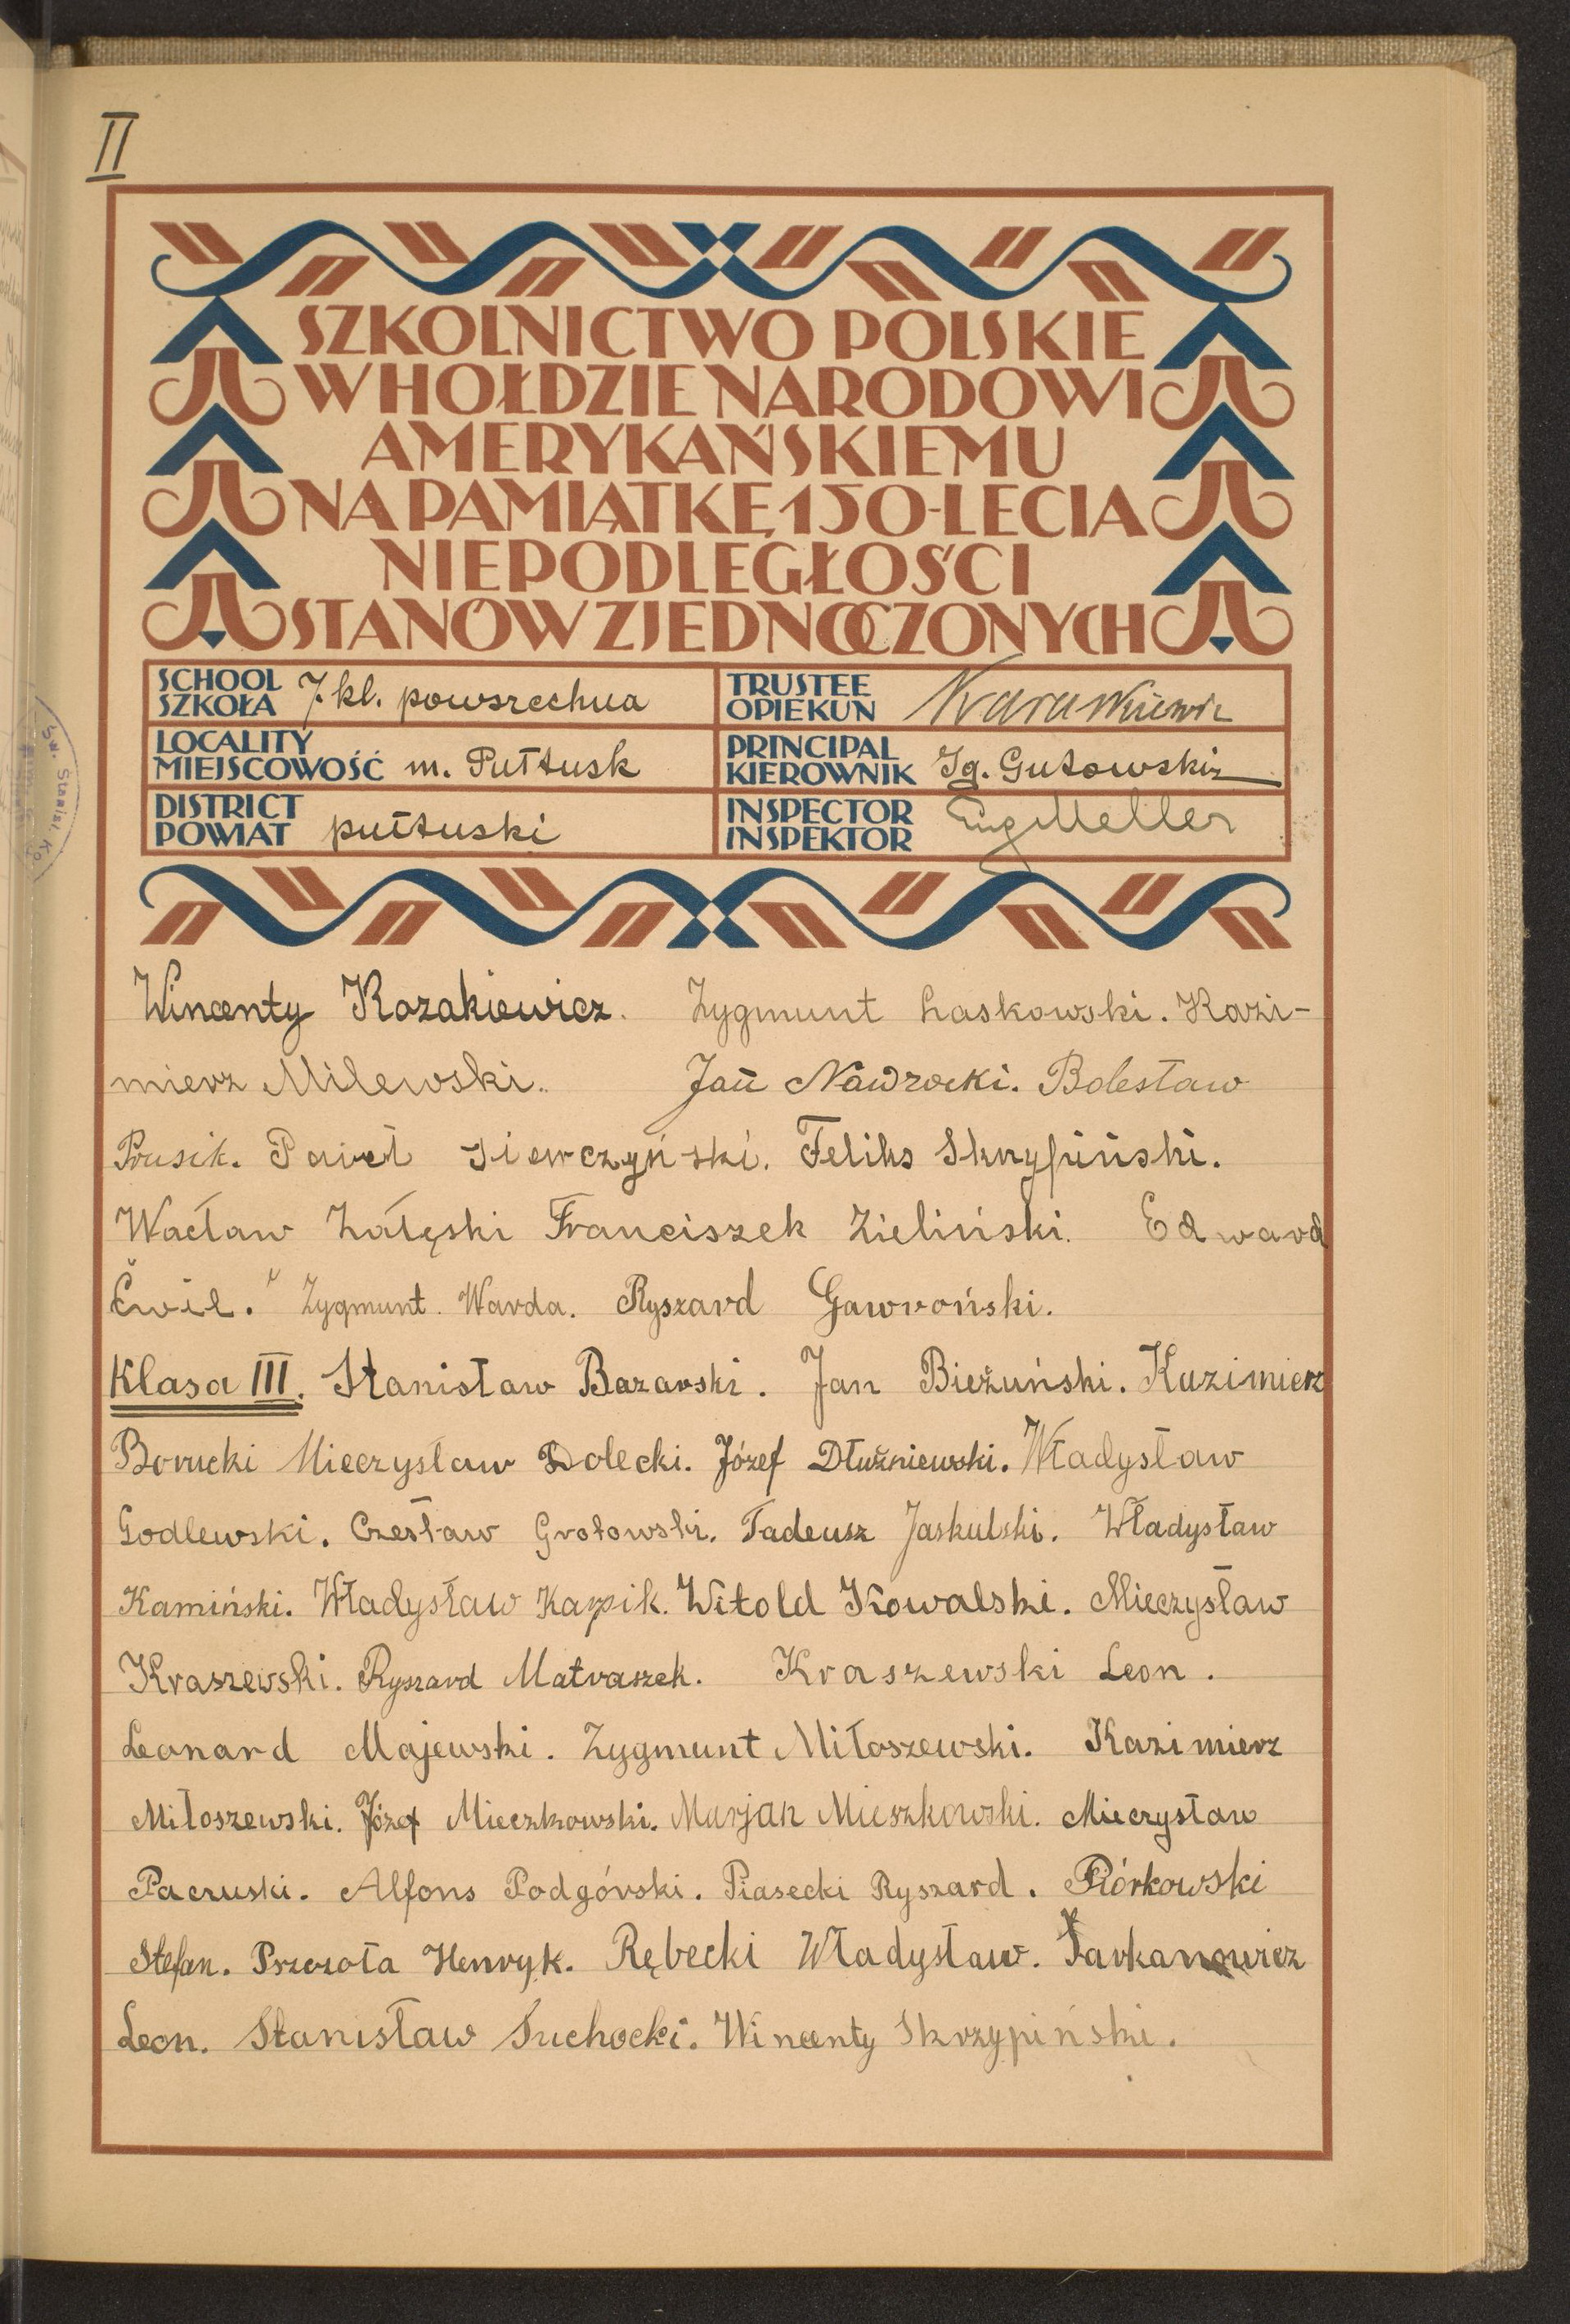 II
SZKOLNICTWO POLSKIE
W HOŁDZIE NARODOWI
AMERYKAŃSKIEMU
NA PAMIĄTKĘ 150-LECIA
NIEPODLEGŁOŚCI
STANÓW ZJEDNOCZONYCH
SCHOOL
SZKOŁA 7 kl. powszechna
TRUSTEE
OPIEKUN
LOCALITY
MIEJSCOWOŚĆ m. Pułtusk
PRINCIPAL
KIEROWNIK Ig. Gutowski
DISTRICT
POWIAT pułtuski
INSPECTOR
INSPEKTOR Eug Meller
Wincenty Kozakiewicz. Zygmunt Laskowski. Kazi-
mierz Milewski. Jan Nawrocki. Bolesław
Prusik. Paweł Siewczyński. Feliks Skrypiński.
Wacław Załęski Franciszek Zieliński. Edward
Ćwil. Zygmunt. Warda. Ryszard Gawroński.
Klasa III. Stanisław Bazarski. Jan Bieżuński. Kazimierz
Borucki Mieczysław Dolecki. Józef Dłużniewski. Władysław
Godlewski. Czesław Grotowski. Tadeusz Jaskulski. Władysław
Kamiński. Władysław Karpik. Witold Kowalski. Mieczysław
Kraszewski. Ryszard Matraszek. Kraszewski Leon.
Leonard Majewski. Zygmunt Miłoszewski. Kazimierz
Miłoszewski. Józef Mieczkowski. Marjan Mieszkowski. Mieczysław
Paczuski. Alfons Podgórski. Piasecki Ryszard. Piórkowski
Stefan. Pszczoła Henryk. Rębecki Władysław.
Leon. Stanisław Suchocki. Wincenty Skrzypiński.